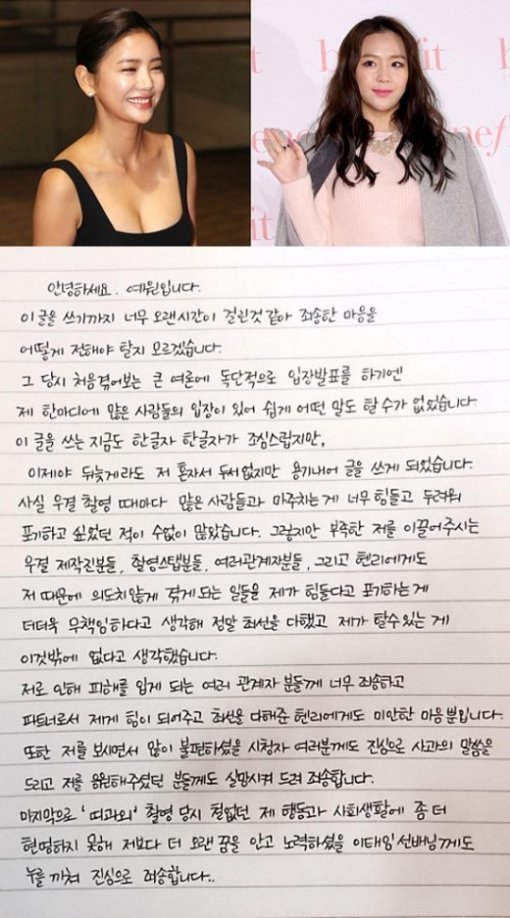 benefit
benefit
안녕하세요. 예원입니다.
이 글을 쓰기까지 너무 오랜시간이 걸린것 같아 죄송한 마음을
어떻게 전해야 할지 모르겠습니다.
그 당시 처음겪어보는 큰 여론에 독단적으로 입장발표를 하기엔
제 한마디에 많은 사람들의 입장이 있어 쉽게 어떤 말도 할 수가 없었습니다
이 글을 쓰는 지금도 한글자 한글자가 조심스럽지만,
이제야 뒤늦게라도 저 혼자서 두서없지만 용기내어 글을 쓰게 되었습니다.
사실 우결 촬영 때마다 많은 사람들과 마주치는게 너무 힘들고 두려워
포기하고 싶었던 적이 수없이 많았습니다. 그렇지만 부족한 저를 이끌어주시는
우결 제작진분들, 촬영스탭분들, 여러관계자분들, 그리고 헨리에게도
저 때문에 의도치않게 겪게 되는 일들을 제가 힘들다고 포기하는게
더더욱 무책임하다고 생각해 정말 최선을 다했고 제가 할수있는 게
이것밖에 없다고 생각했습니다.
저로 인해 피해를 입게 되는 여러 관계자 분들께 너무 죄송하고
파트너로서 제게 힘이 되어주고 최선을 다해준 헨리에게도 미안한 마음뿐입니다.
또한 저를 보시면서 많이 불편하셨을 시청자 여러분께도 진심으로 사과의 말씀을
드리고 저를 응원해주셨던 분들께도 실망시켜 드려 죄송합니다.
마지막으로 '띠과외' 촬영 당시 철없던 제 행동과 사회생활에 좀 더
현명하지 못해 저보다 더 오랜 꿈을 안고 노력하셨을 이태임선배님께도
누를 끼쳐 진심으로 죄송합니다..